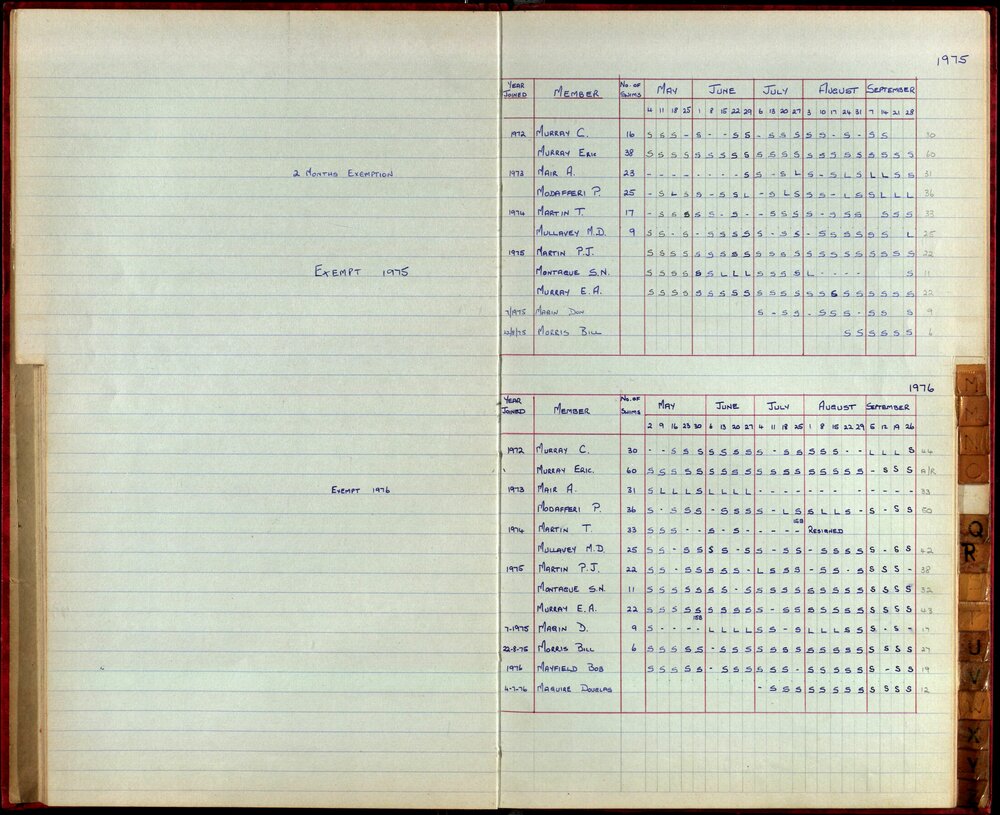 2 MONTHS EXEMPTION
EXEMPT 1975
EXEMPT 1976
1975
YEAR JOINED MEMBER No. OF SWIMS MAY JUNE JULY AUGUST SEPTEMBER
4 11 18 25 1 8 15 22 29 6 13 20 27 3 10 17 24 31 7 14 21 28
1972 MURRAY C. 16 S S S - S - - S S - S S S S S - S - S S 30
MURRAY ERIC 38 S S S S S S S S S S S S S S S S S S S S S S 60
1973 MAIR A. 23 - - - - - - - - S S - S L S - S L S L L S S 31
MODAFFERI P. 25 - S L S S - S S L - S L S S S - L S S L L L 36
1974 MARTIN T. 17 - S S S S S - S - - S S S S - S S S S S S 33
MULLAVEY M.D. 9 S S - S - S S S S S - S S - S S S S S S L 25
1975 MARTIN P.J. S S S S S S S S S S S S S S S S S S S S S S 22
MONTAGUE S.N. S S S S S S L L L S S S S L - - - - S 11
MURRAY E.A. S S S S S S S S S S S S S S S S S S S S S S 22
7/1975 MARIN DON S - S S - S S S - S S S 9
22/8/75 MORRIS BILL S S S S S S 6
1976
YEAR JOINED MEMBER No. OF SWIMS MAY JUNE JULY AUGUST SEPTEMBER
2 9 16 23 30 6 13 20 27 4 11 18 25 1 8 15 22 29 5 12 19 26
1972 MURRAY C. 30 - - S S S S S S S S - S S S S S - - L L L S 44
MURRAY ERIC. 60 S S S S S S S S S S S S S S S S S S - S S S A/R
1973 MAIR A. 31 S L L L S L L L L - - - - - - - - - - - - - 33
MODAFFERI P. 36 S - S S S - S S S S - L S S L L S - S - S S 50
1974 MARTIN T. 33 S S S - - S - S - - - - - 15B RESIGNED
MULLAVEY M.D. 25 S S - S S S S - S S - S S - S S S S S - S S 42
1975 MARTIN P.J. 22 S S - S S S S S - L S S S - S S - S S S S - 38
MONTAGUE S.N. 11 S S S S S S S - S S S S S S S S S S S S S S 32
MURRAY E.A. 22 S S S S S S S S S S - S S S S S S S S S S S 43
7-1975 MARIN D. 9 S - - - - 15B L L L L S S - S L L L S S S - S - 17
22-8-75 MORRIS BILL 6 S S S S S - S S S S S S S S S S S S S S S S 27
1976 MAYFIELD BOB S S S S S - S S S S S S - S S S S S S - S S 19
4-7-76 MAGUIRE DOUGLAS - S S S S S S S S S S S S 12
M
M
N
O
Q
R
U
V
W
X
Y